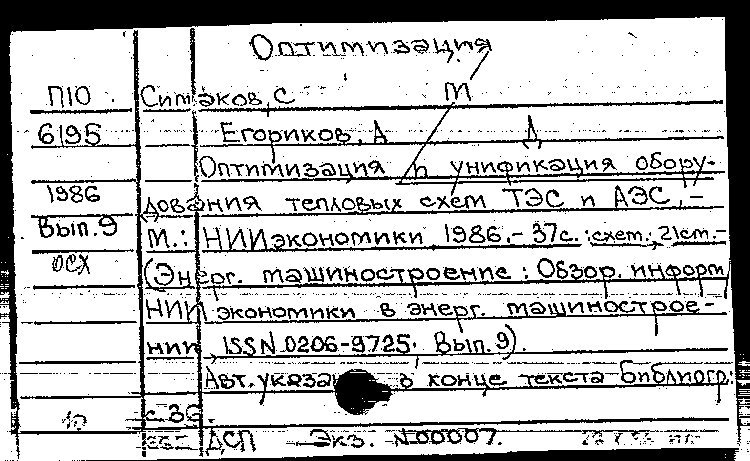 Оптимизация
П10 Симаков, С М
6195 Егориков, А Д
Оптимизация и унификация обору-
1986 дования тепловых схем ТЭС и АЭС.-
Вып.9 М.: НИИэкономики, 1986.- 37с.: схем.; 21см.-
ОСХ (Энерг. машиностроение: Обзор. информ
НИИ экономики в энерг. машинострое-
нии, ISSN 0206-9725; Вып.9).
Авт. указа в конце текста Библиогр.:
10 с 36.
ДСП Экз. N00007.